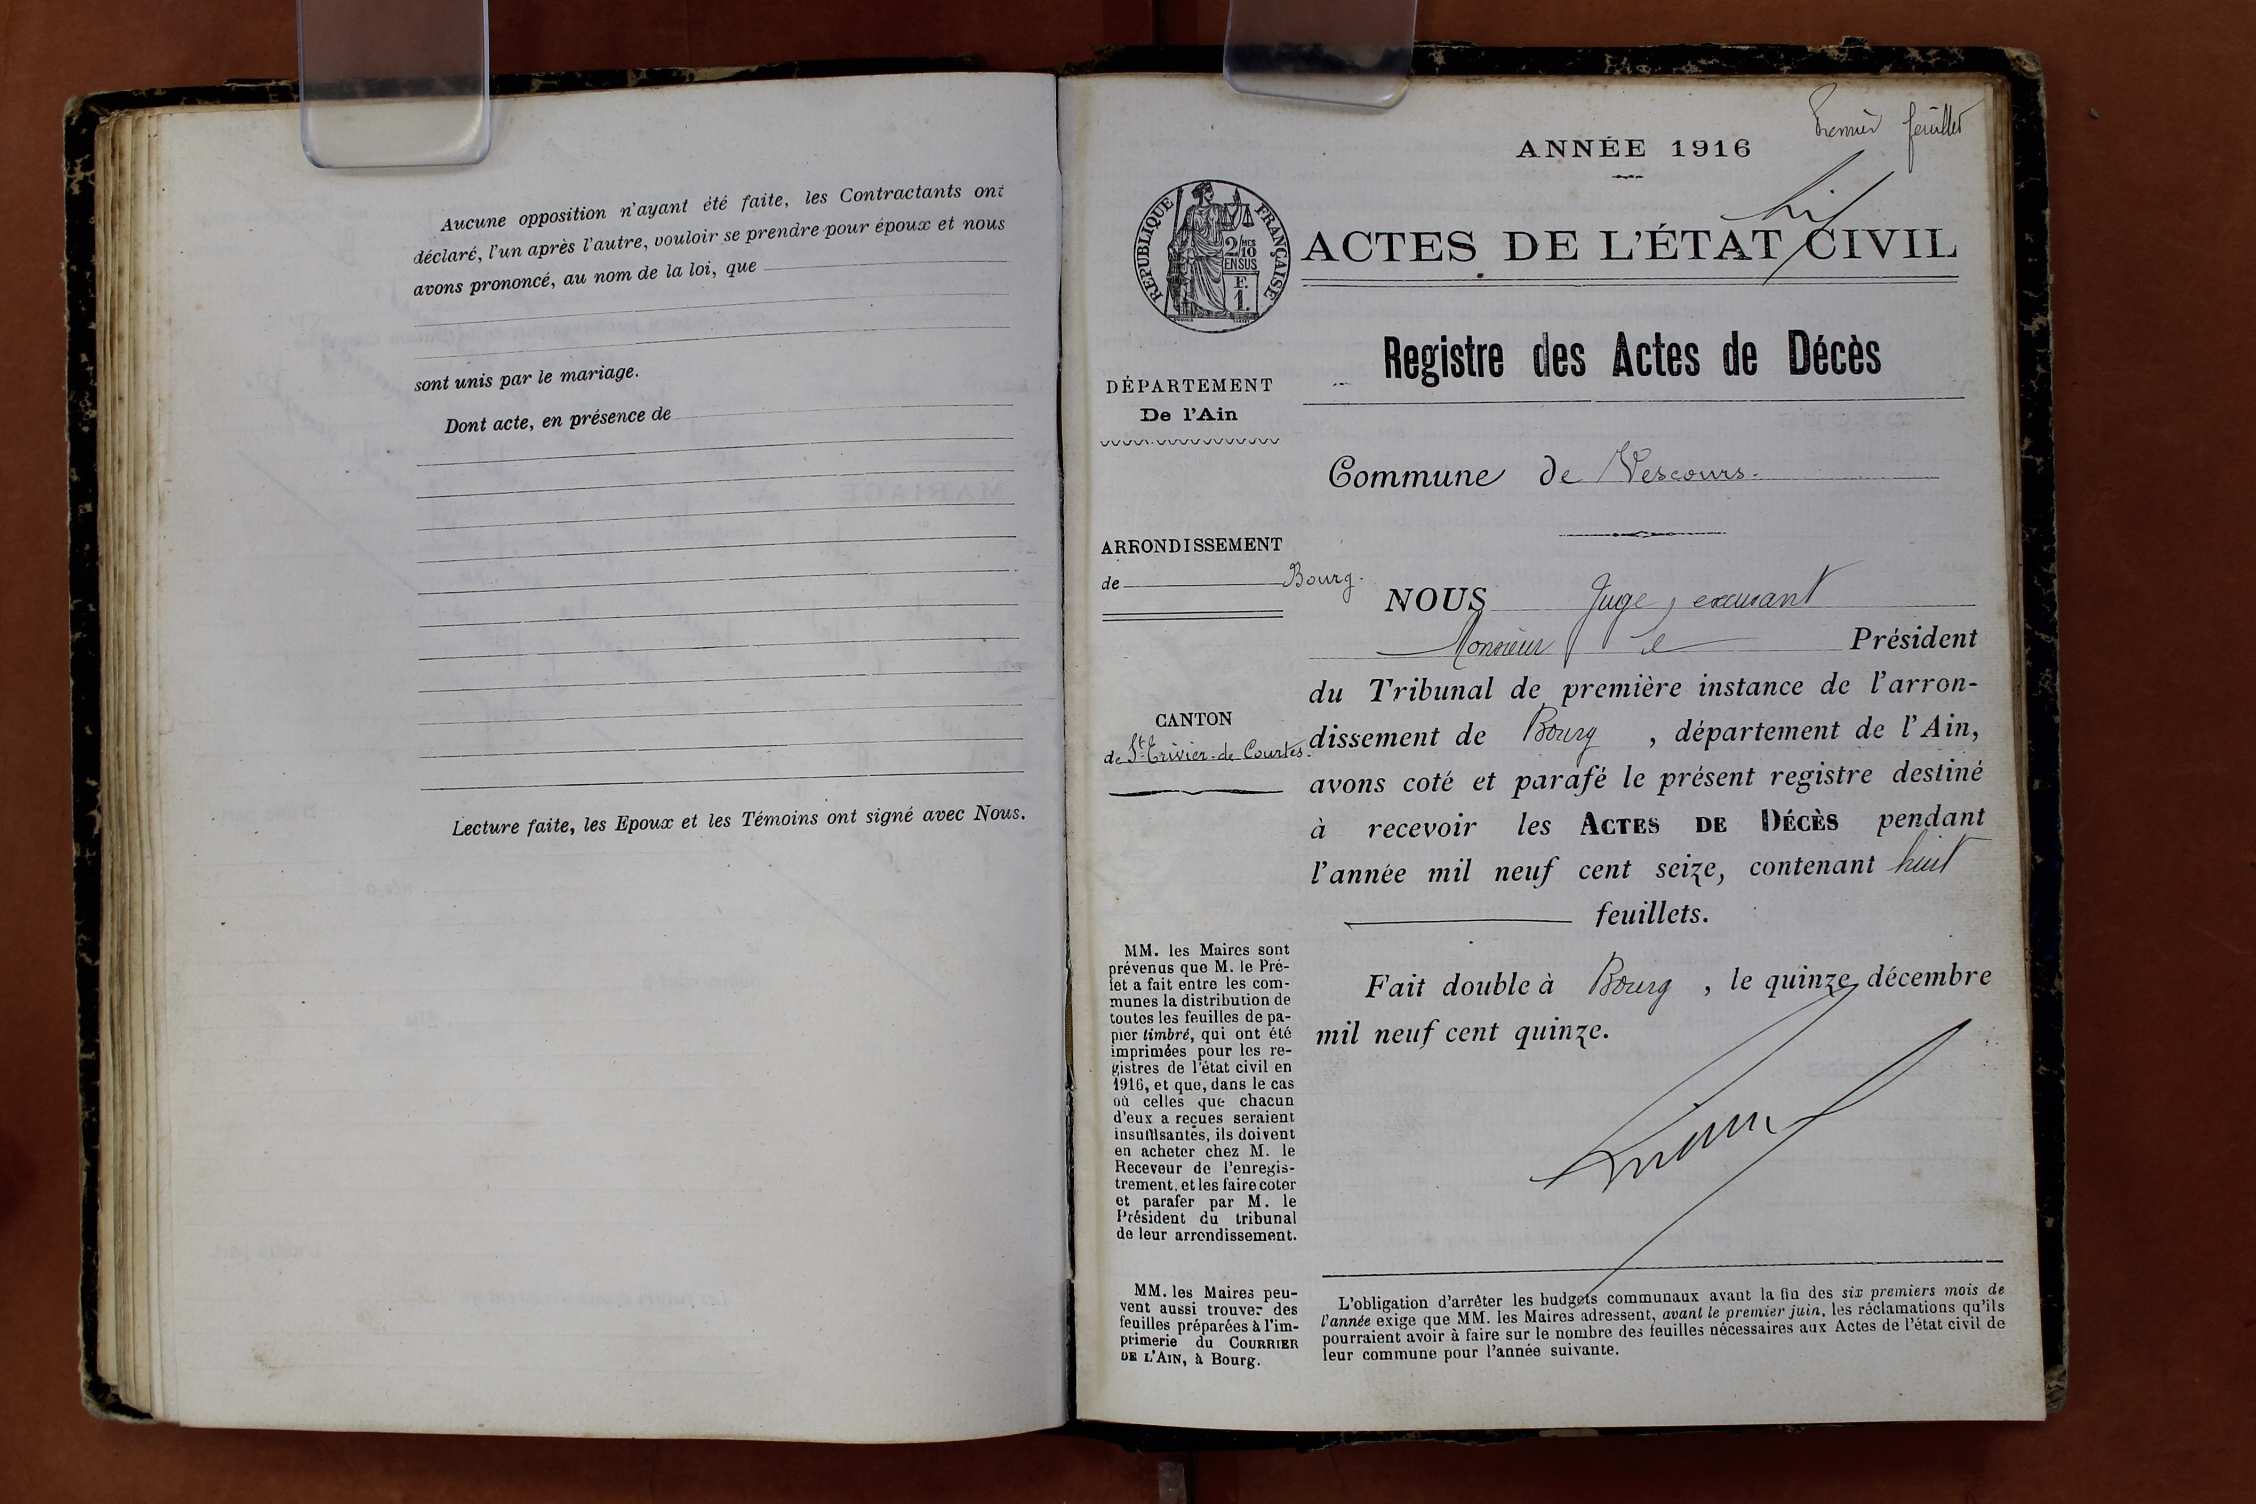 Aucune opposition n'ayant été faite, les Contractants ont
déclaré, l'un après l'autre, vouloir se prendre pour époux et nous
avons prononcé, au nom de la loi, que
sont unis par le mariage.
Dont acte, en présence de
Lecture faite, les Epoux et les Témoins ont signé avec Nous.
Premier feuillet
ANNÉE 1916
RÉPUBLIQUE FRANÇAISE
2/10 MES
EN SUS
F.
1.
ACTES DE L'ÉTAT CIVIL
Registre des Actes de Décès
DÉPARTEMENT
De l'Ain
Commune de Vescours.
ARRONDISSEMENT
de Bourg.
CANTON
de St-Trivier-de Courtes.
NOUS Juge, excusant
Monsieur le Président
du Tribunal de première instance de l'arron-
dissement de Bourg, département de l'Ain,
avons coté et parafé le présent registre destiné
à recevoir les ACTES DE DÉCÈS pendant
l'année mil neuf cent seize, contenant huit
feuillets.
Fait double à Bourg, le quinze décembre
mil neuf cent quinze.
MM. les Maires sont
prévenus que M. le Pré-
fet a fait entre les com-
munes la distribution de
toutes les feuilles de pa-
pier timbré, qui ont été
imprimées pour les re-
gistres de l'état civil en
1916, et que, dans le cas
où celles que chacun
d'eux a reçues seraient
insuffisantes, ils doivent
en acheter chez M. le
Receveur de l'enregis-
trement, et les faire coter
et parafer par M. le
Président du tribunal
de leur arrondissement.
MM. les Maires peu-
vent aussi trouver des
feuilles préparées à l'im-
primerie du COURRIER
DE L'AIN, à Bourg.
L'obligation d'arrêter les budgets communaux avant la fin des six premiers mois de
l'année exige que MM. les Maires adressent, avant le premier juin, les réclamations qu'ils
pourraient avoir à faire sur le nombre des feuilles nécessaires aux Actes de l'état civil de
leur commune pour l'année suivante.